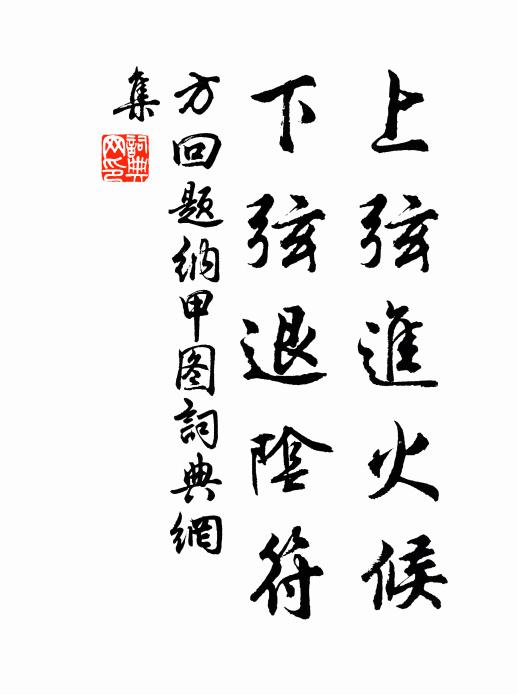 上弦進火候
下弦退陰符
方回题納甲图詞典網
集
詞典
网印